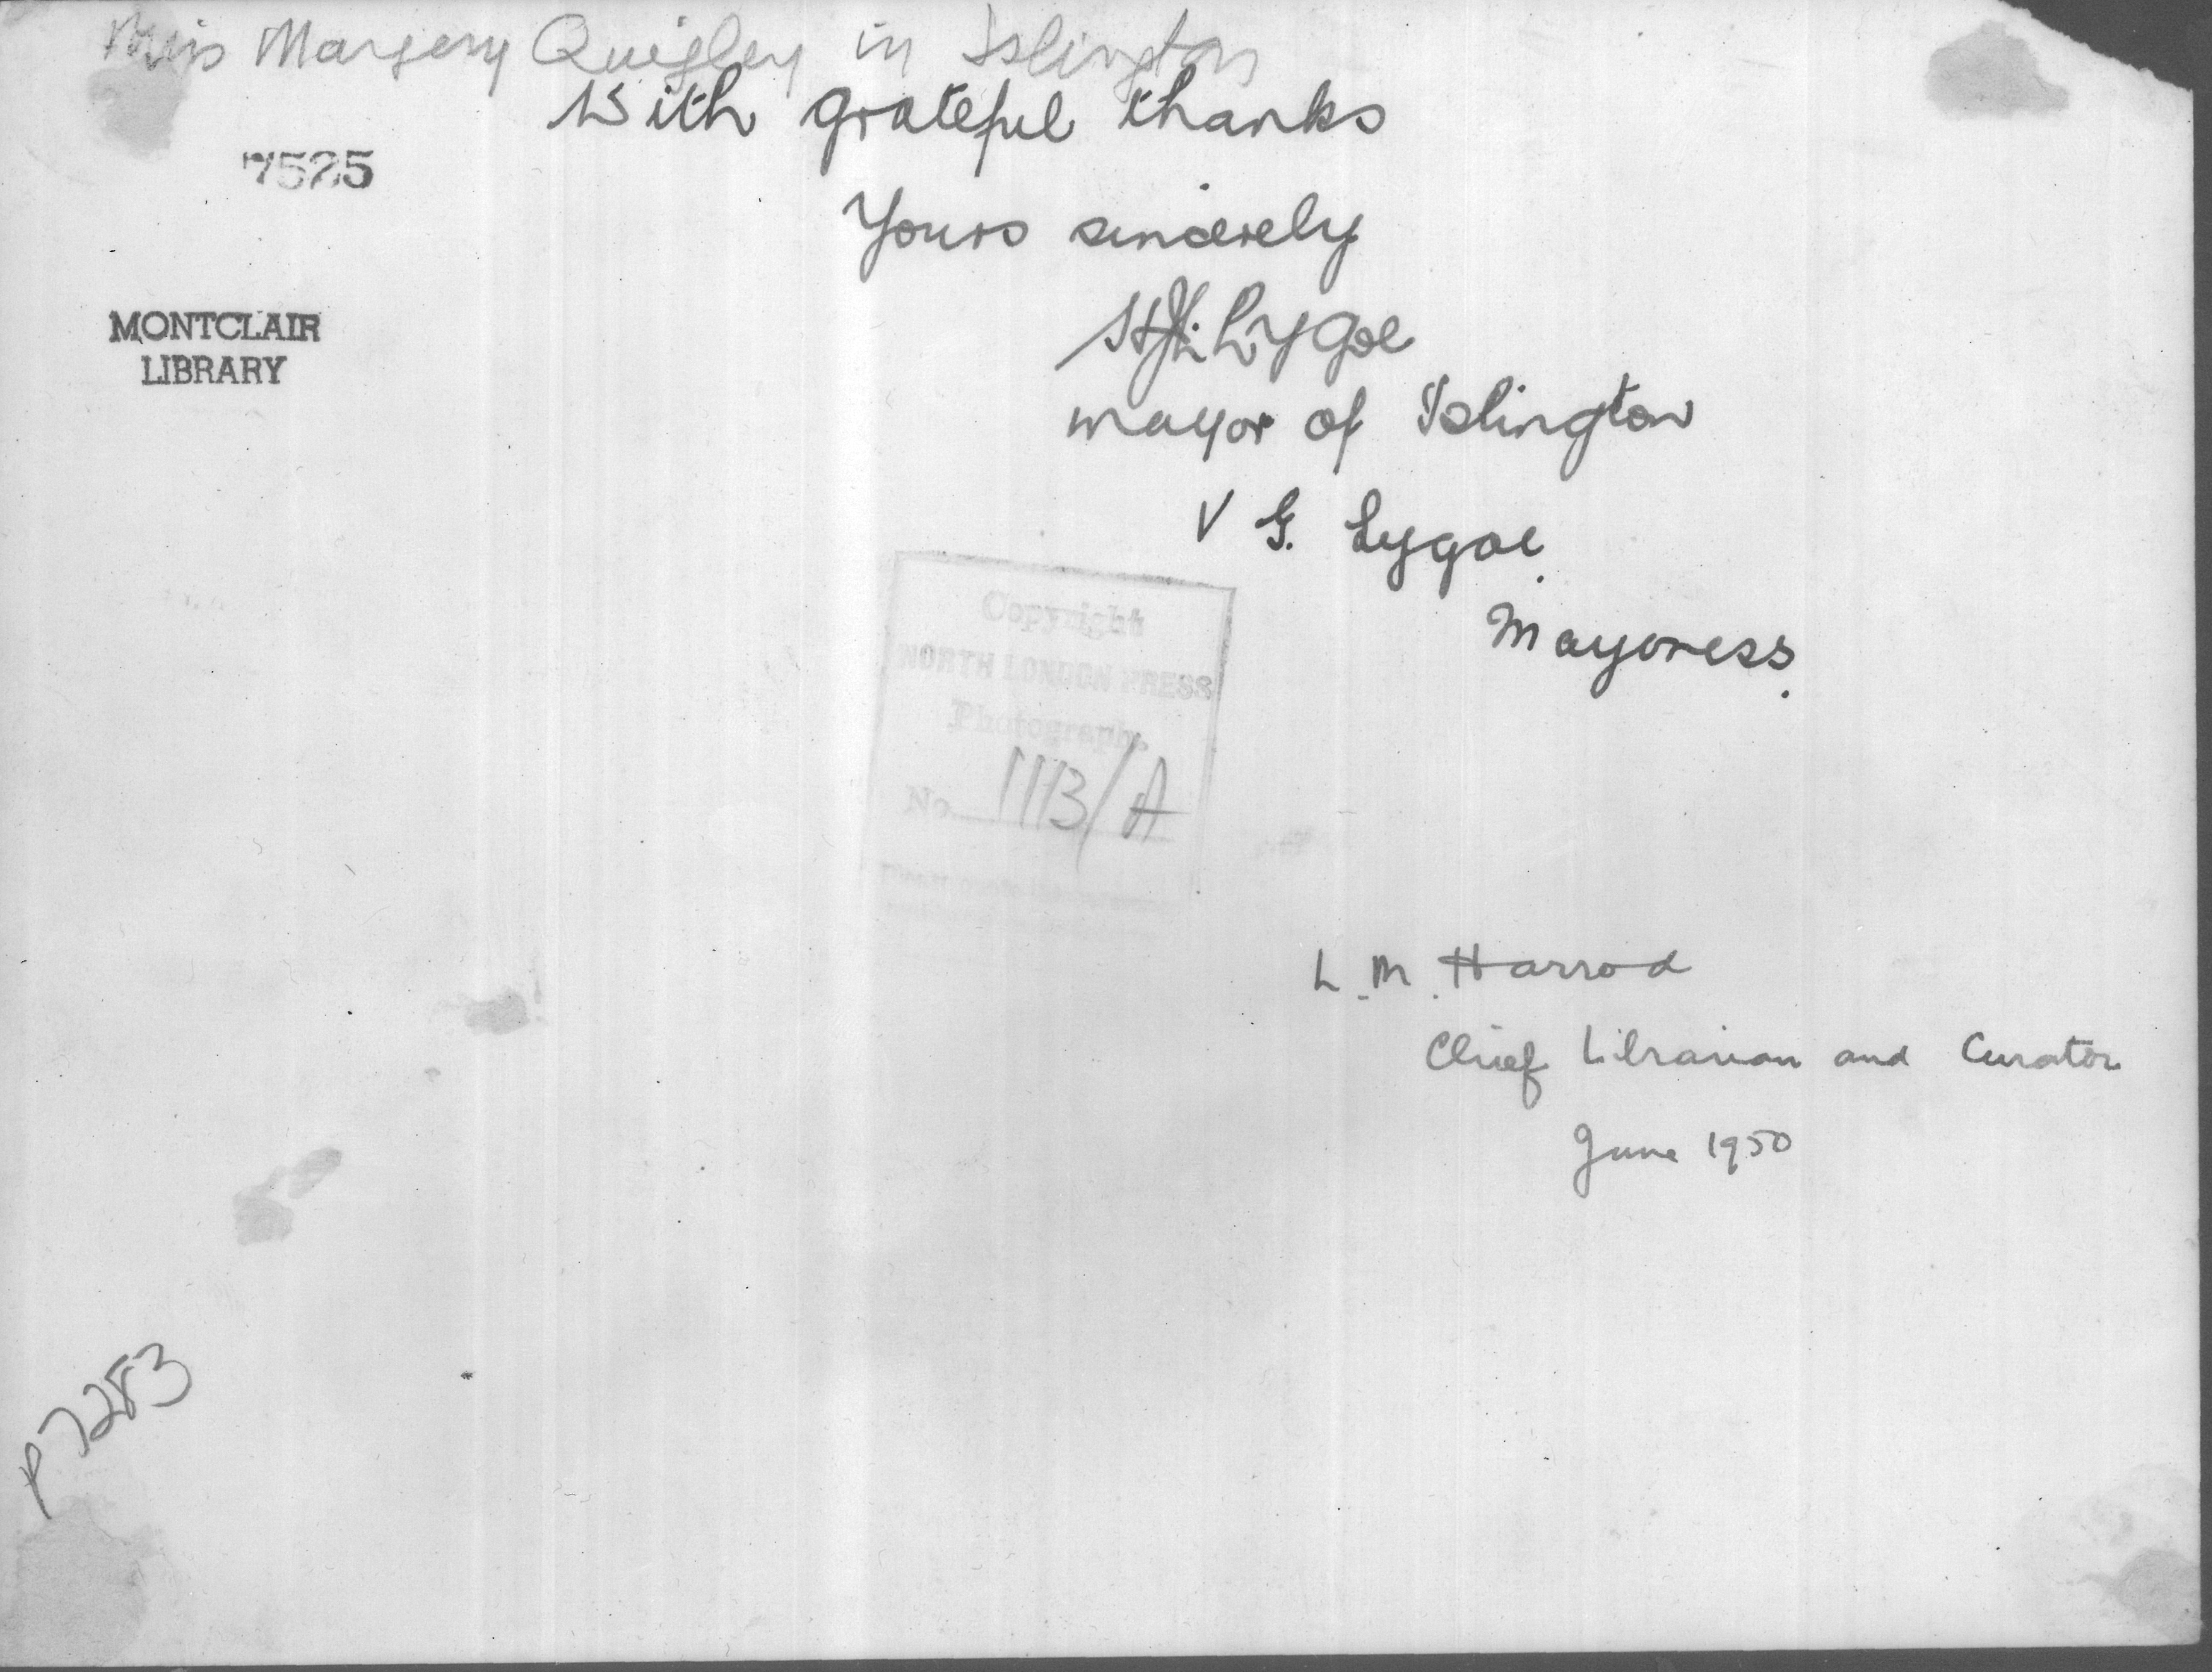 Miss Margery Quigley in Islington
With grateful thanks
7525
Yours sincerely
Lygoe
MONTCLAIR
LIBRARY
mayor of Islington
V G. Lygoe.
Mayoress.
Copyright
NORTH LONDON PRESS
Photograph.
No. 1113/A
L. M. Harrod
Chief Librarian and Curator
June 1950
P7283